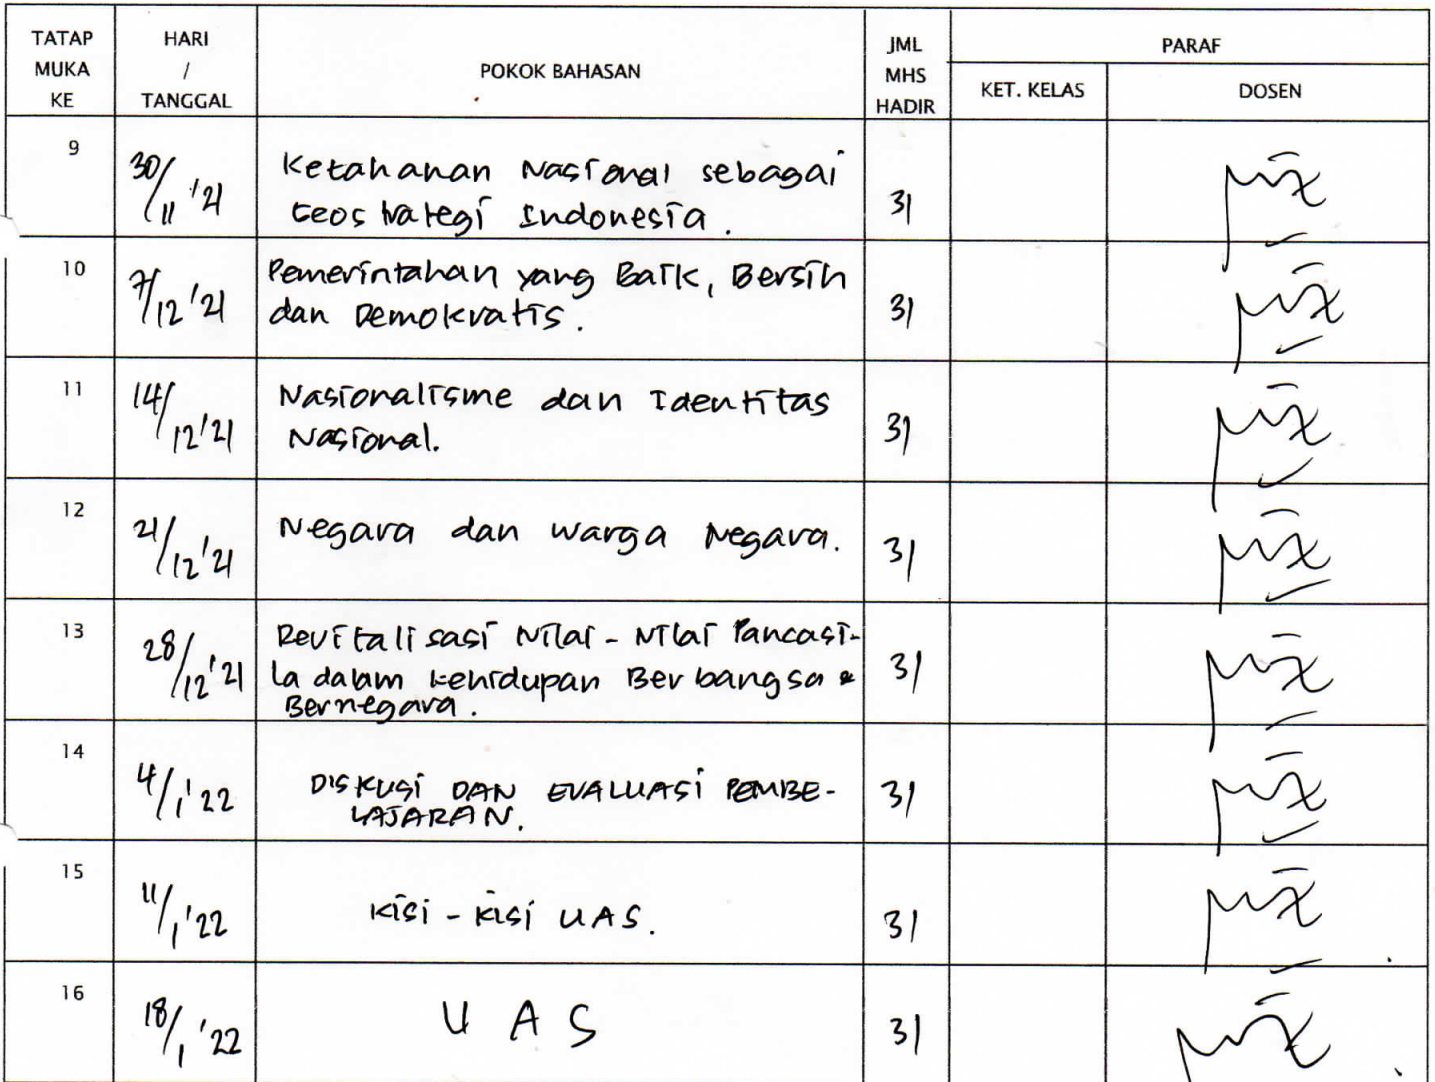 TATAP MUKA KE HARI / TANGGAL POKOK BAHASAN JML MHS HADIR PARAF
KET. KELAS DOSEN
9 30/11 '21 Ketahanan Nasional sebagai 31
Geostrategi Indonesia.
10 7/12 '21 Pemerintahan yang Baik, Bersih 31
dan Demokratis.
11 14/12 '21 Nasionalisme dan Identitas 31
Nasional.
12 21/12 '21 Negara dan Warga Negara. 31
13 28/12 '21 Revitalisasi Nilai - Nilai Pancasi- 31
la dalam Kehidupan Berbangsa &
Bernegara.
14 4/1 '22 DISKUSI DAN EVALUASI PEMBE- 31
LAJARAN.
15 11/1 '22 Kisi - Kisi UAS. 31
16 18/1 '22 UAS 31